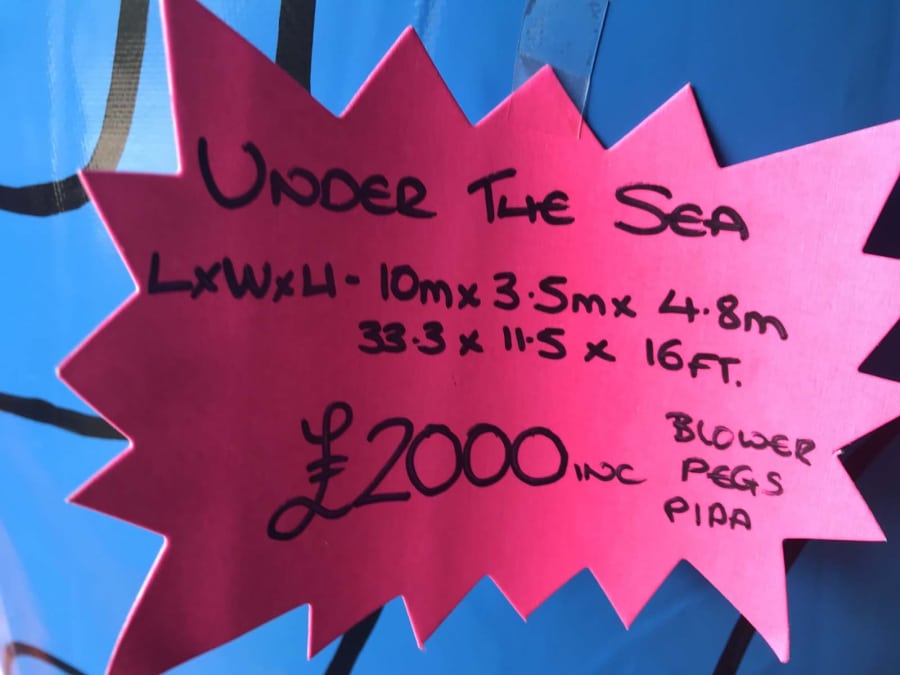 UNDER THE SEA
LxWxH - 10m x 3.5m x 4.8m
33.3 x 11.5 x 16FT.
£2000 INC BLOWER
PEGS
PIPA